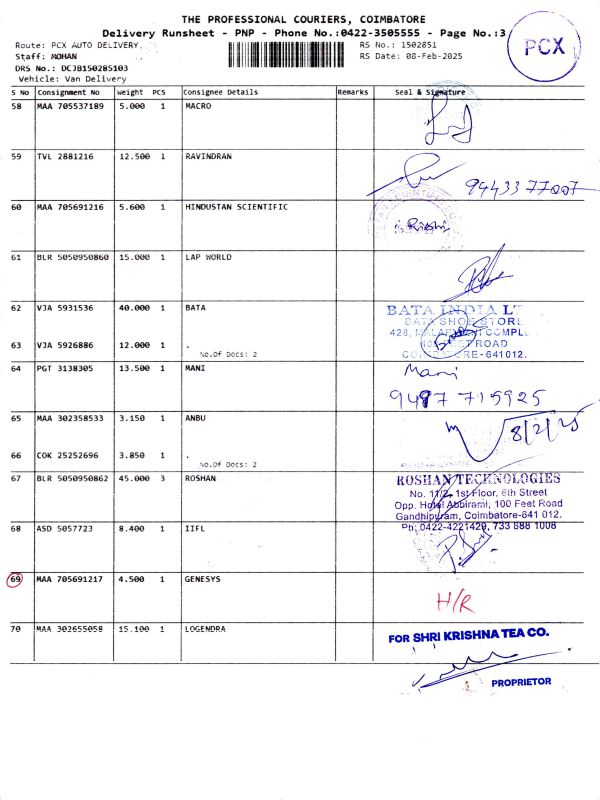 THE PROFESSIONAL COURIERS, COIMBATORE
Delivery Runsheet - PNP - Phone No.:0422-3505555 - Page No.:3
PCX
Route: PCX AUTO DELIVERY.
RS No.: 1502851
Staff: MOHAN
RS Date: 08-Feb-2025
DRS No.: DCJB150285103
Vehicle: Van Delivery
S No Consignment No Weight PCS Consignee Details Remarks Seal & Signature
58 MAA 705537189 5.000 1 MACRO
59 TVL 2881216 12.500 1 RAVINDRAN
9443377007
60 MAA 705691216 5.600 1 HINDUSTAN SCIENTIFIC
61 BLR 5050950860 15.000 1 LAP WORLD
62 VJA 5931536 40.000 1 BATA
BATA INDIA LT
BATA SHOE STORE
428, COMPL
63 VJA 5926886 12.000 1 .
ROAD
No.Of Docs: 2
COIMBATORE-641012.
64 PGT 3138305 13.500 1 MANI
Mani
9487715925
65 MAA 302358533 3.150 1 ANBU
8/2/25
66 COK 25252696 3.850 1 .
No.Of Docs: 2
67 BLR 5050950862 45.000 3 ROSHAN
ROSHAN TECHNOLOGIES
No. 11/2, 1st Floor, 6th Street
Opp. Hotel Abbirami, 100 Feet Road
Gandhipuram, Coimbatore-641 012.
Ph: 0422-4221429, 733 888 1008
68 ASD 5057723 8.400 1 IIFL
69 MAA 705691217 4.500 1 GENESYS
H/R
70 MAA 302655058 15.100 1 LOGENDRA
FOR SHRI KRISHNA TEA CO.
PROPRIETOR